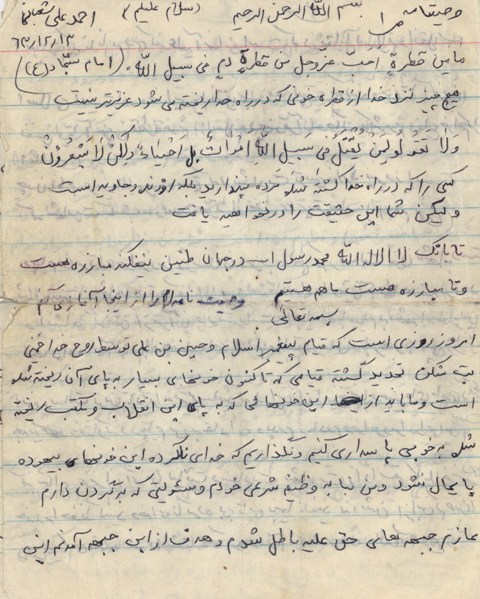 وصیتنامه ۱ بسم الله الرحمن الرحیم (سلام علیکم) احمد علی
۶۲/۱۲/۱۳
ما من قطرةٍ احبّ عزّوجل من قطرةٍ دمٍ فی سبیل الله. (امام سجاد (ع))
هیچ چیز نزد خدا از قطره خونی که در راه خدا ریخته می شود عزیزتر نیست
وَلا تَقولولِمَنْ یُقْتَلُ فی سبیل اللهِ اَمْواتٌ بل اَحْیاءٌ وَلکِنْ لا تَشْعُرُونْ
کسی را که در راه خدا کشته شد مرده نپندارید بلکه او زنده و جاوید است
ولیکن شما این حقیقت را در نخواهید یافت
تا بانگ لا اله الا الله محمد رسول الله در جهان طنین نیفکند مبارزه هست
وتا مبارزه هست ما هم هستیم وصیت نامه را از اینجا آغاز می کنم
بسمه تعالی
امروز روزی است که قیام پیغمبر اسلام وحسین بن علی توسط روح خدا خمینی
بت شکن تجدید گشته قیامی که تاکنون خونهای بسیار به پای آن ریخته شده
است وما باید از این خونهائی که به پای این انقلاب و مکتب ریخته
شده به خوبی پاسداری کنیم و نگذاریم که خدای نکرده این خونها بیهوده
پایمال نشود ومن بنا به وظیفه شرعی خودم ومسئولیتی که به گردن دارم
عازم جبهه های حق علیه باطل شدم و هدف از این جبهه آمدنم این